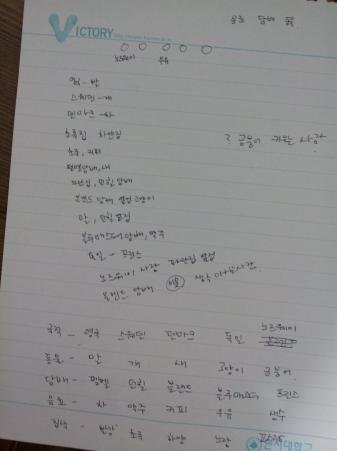 VICTORY
음료 담배 국
노르웨이 우유
영국 - 빨
스웨덴 - 개
덴마크 - 차
초록집 하얀집
초록, 커피
펠멜담배, 새
노란집, 던힐 담배
브렌드 담배 옆집 고양이
말, 던힐 옆집
블루매스터 담배, 맥주
독일 - 프린스
노르웨이 사람 파란집 옆집
브렌드 담배 생수 마시는 사람
? 금붕어 키우는 사람
국적 - 영국 스웨덴 덴마크 독일 노르웨이
동물 - 말 개 새 고양이 금붕어
담배 - 펠멜 던힐 블랜드 블루매스터 프린스
음료 - 차 맥주 커피 우유 생수
집색 - 빨강 초록 하양 노랑